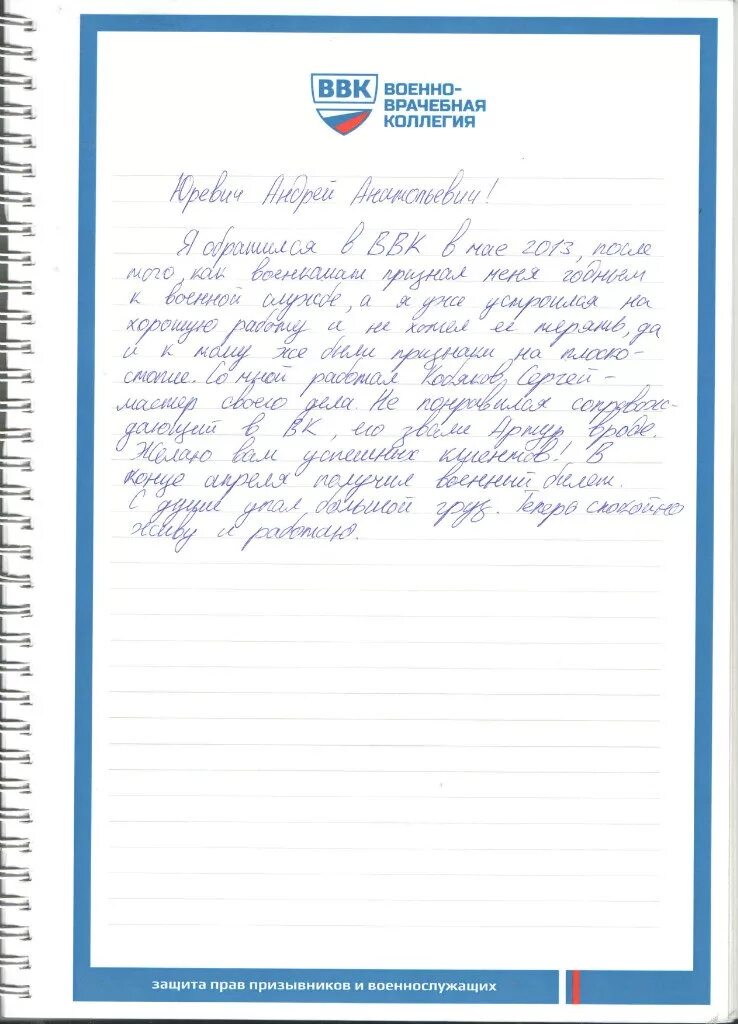 ВВК
ВОЕННО-
ВРАЧЕБНАЯ
КОЛЛЕГИЯ
Юревич Андрей Анатольевич!
Я обратился в ВВК в мае 2013, после
того, как военкомат признал меня годным
к военной службе, а я уже устроился на
хорошую работу и не хотел её терять, да
и к тому же были признаки на плоско-
стопие. Со мной работал Кобяков Сергей -
мастер своего дела. Не понравился сопровож-
дающий в ВК, его звали Артур вроде.
Желаю вам успешных клиентов! В
конце апреля получил военный билет.
С души упал большой груз. Теперь спокойно
живу и работаю.
защита прав призывников и военнослужащих